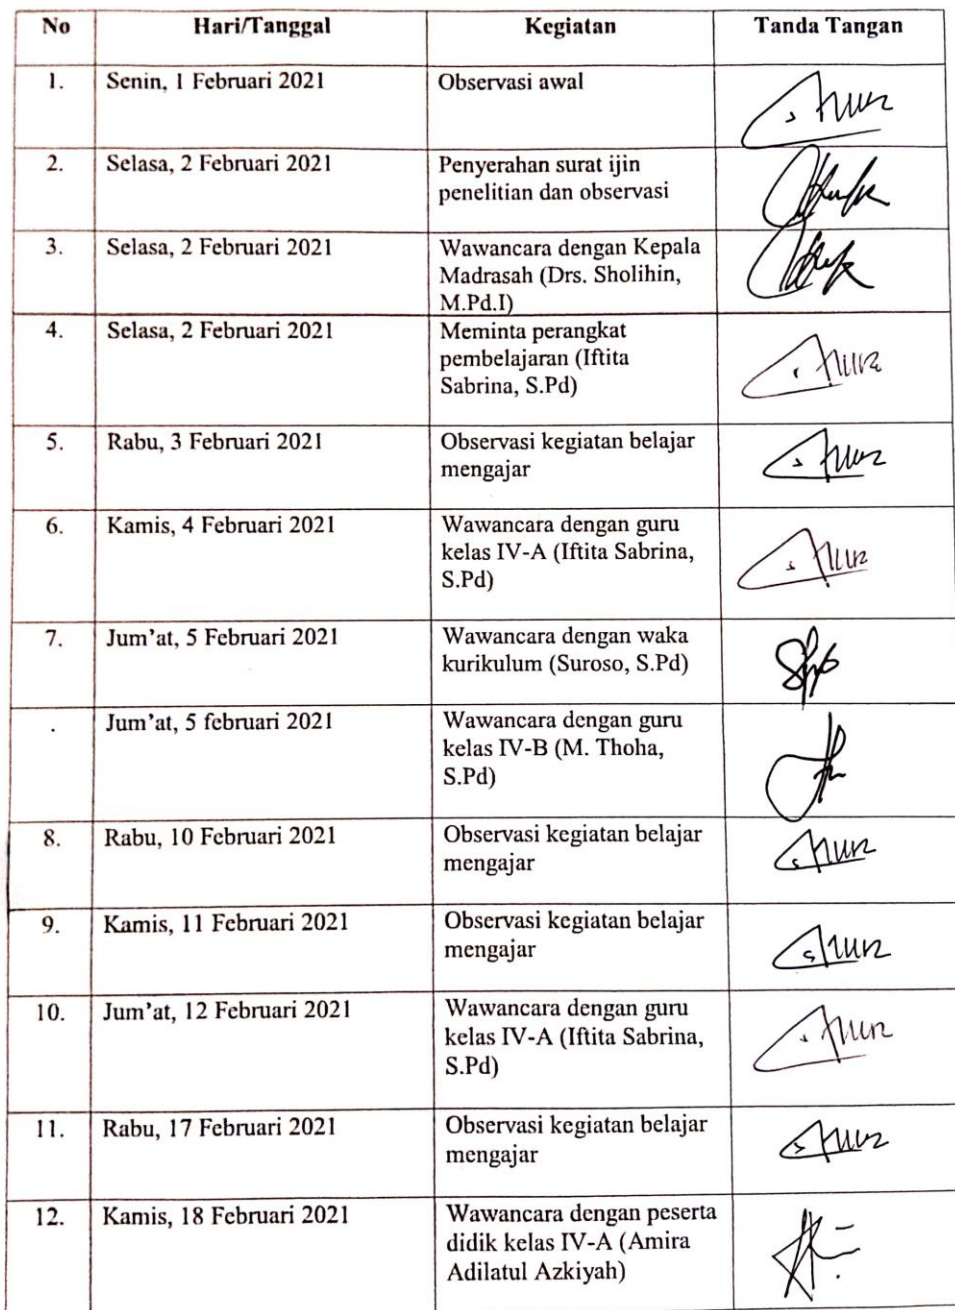 No Hari/Tanggal Kegiatan Tanda Tangan
1. Senin, 1 Februari 2021 Observasi awal
2. Selasa, 2 Februari 2021 Penyerahan surat ijin
penelitian dan observasi
3. Selasa, 2 Februari 2021 Wawancara dengan Kepala
Madrasah (Drs. Sholihin,
M.Pd.I)
4. Selasa, 2 Februari 2021 Meminta perangkat
pembelajaran (Iftita
Sabrina, S.Pd)
5. Rabu, 3 Februari 2021 Observasi kegiatan belajar
mengajar
6. Kamis, 4 Februari 2021 Wawancara dengan guru
kelas IV-A (Iftita Sabrina,
S.Pd)
7. Jum'at, 5 Februari 2021 Wawancara dengan waka
kurikulum (Suroso, S.Pd)
. Jum'at, 5 februari 2021 Wawancara dengan guru
kelas IV-B (M. Thoha,
S.Pd)
8. Rabu, 10 Februari 2021 Observasi kegiatan belajar
mengajar
9. Kamis, 11 Februari 2021 Observasi kegiatan belajar
mengajar
10. Jum'at, 12 Februari 2021 Wawancara dengan guru
kelas IV-A (Iftita Sabrina,
S.Pd)
11. Rabu, 17 Februari 2021 Observasi kegiatan belajar
mengajar
12. Kamis, 18 Februari 2021 Wawancara dengan peserta
didik kelas IV-A (Amira
Adilatul Azkiyah)